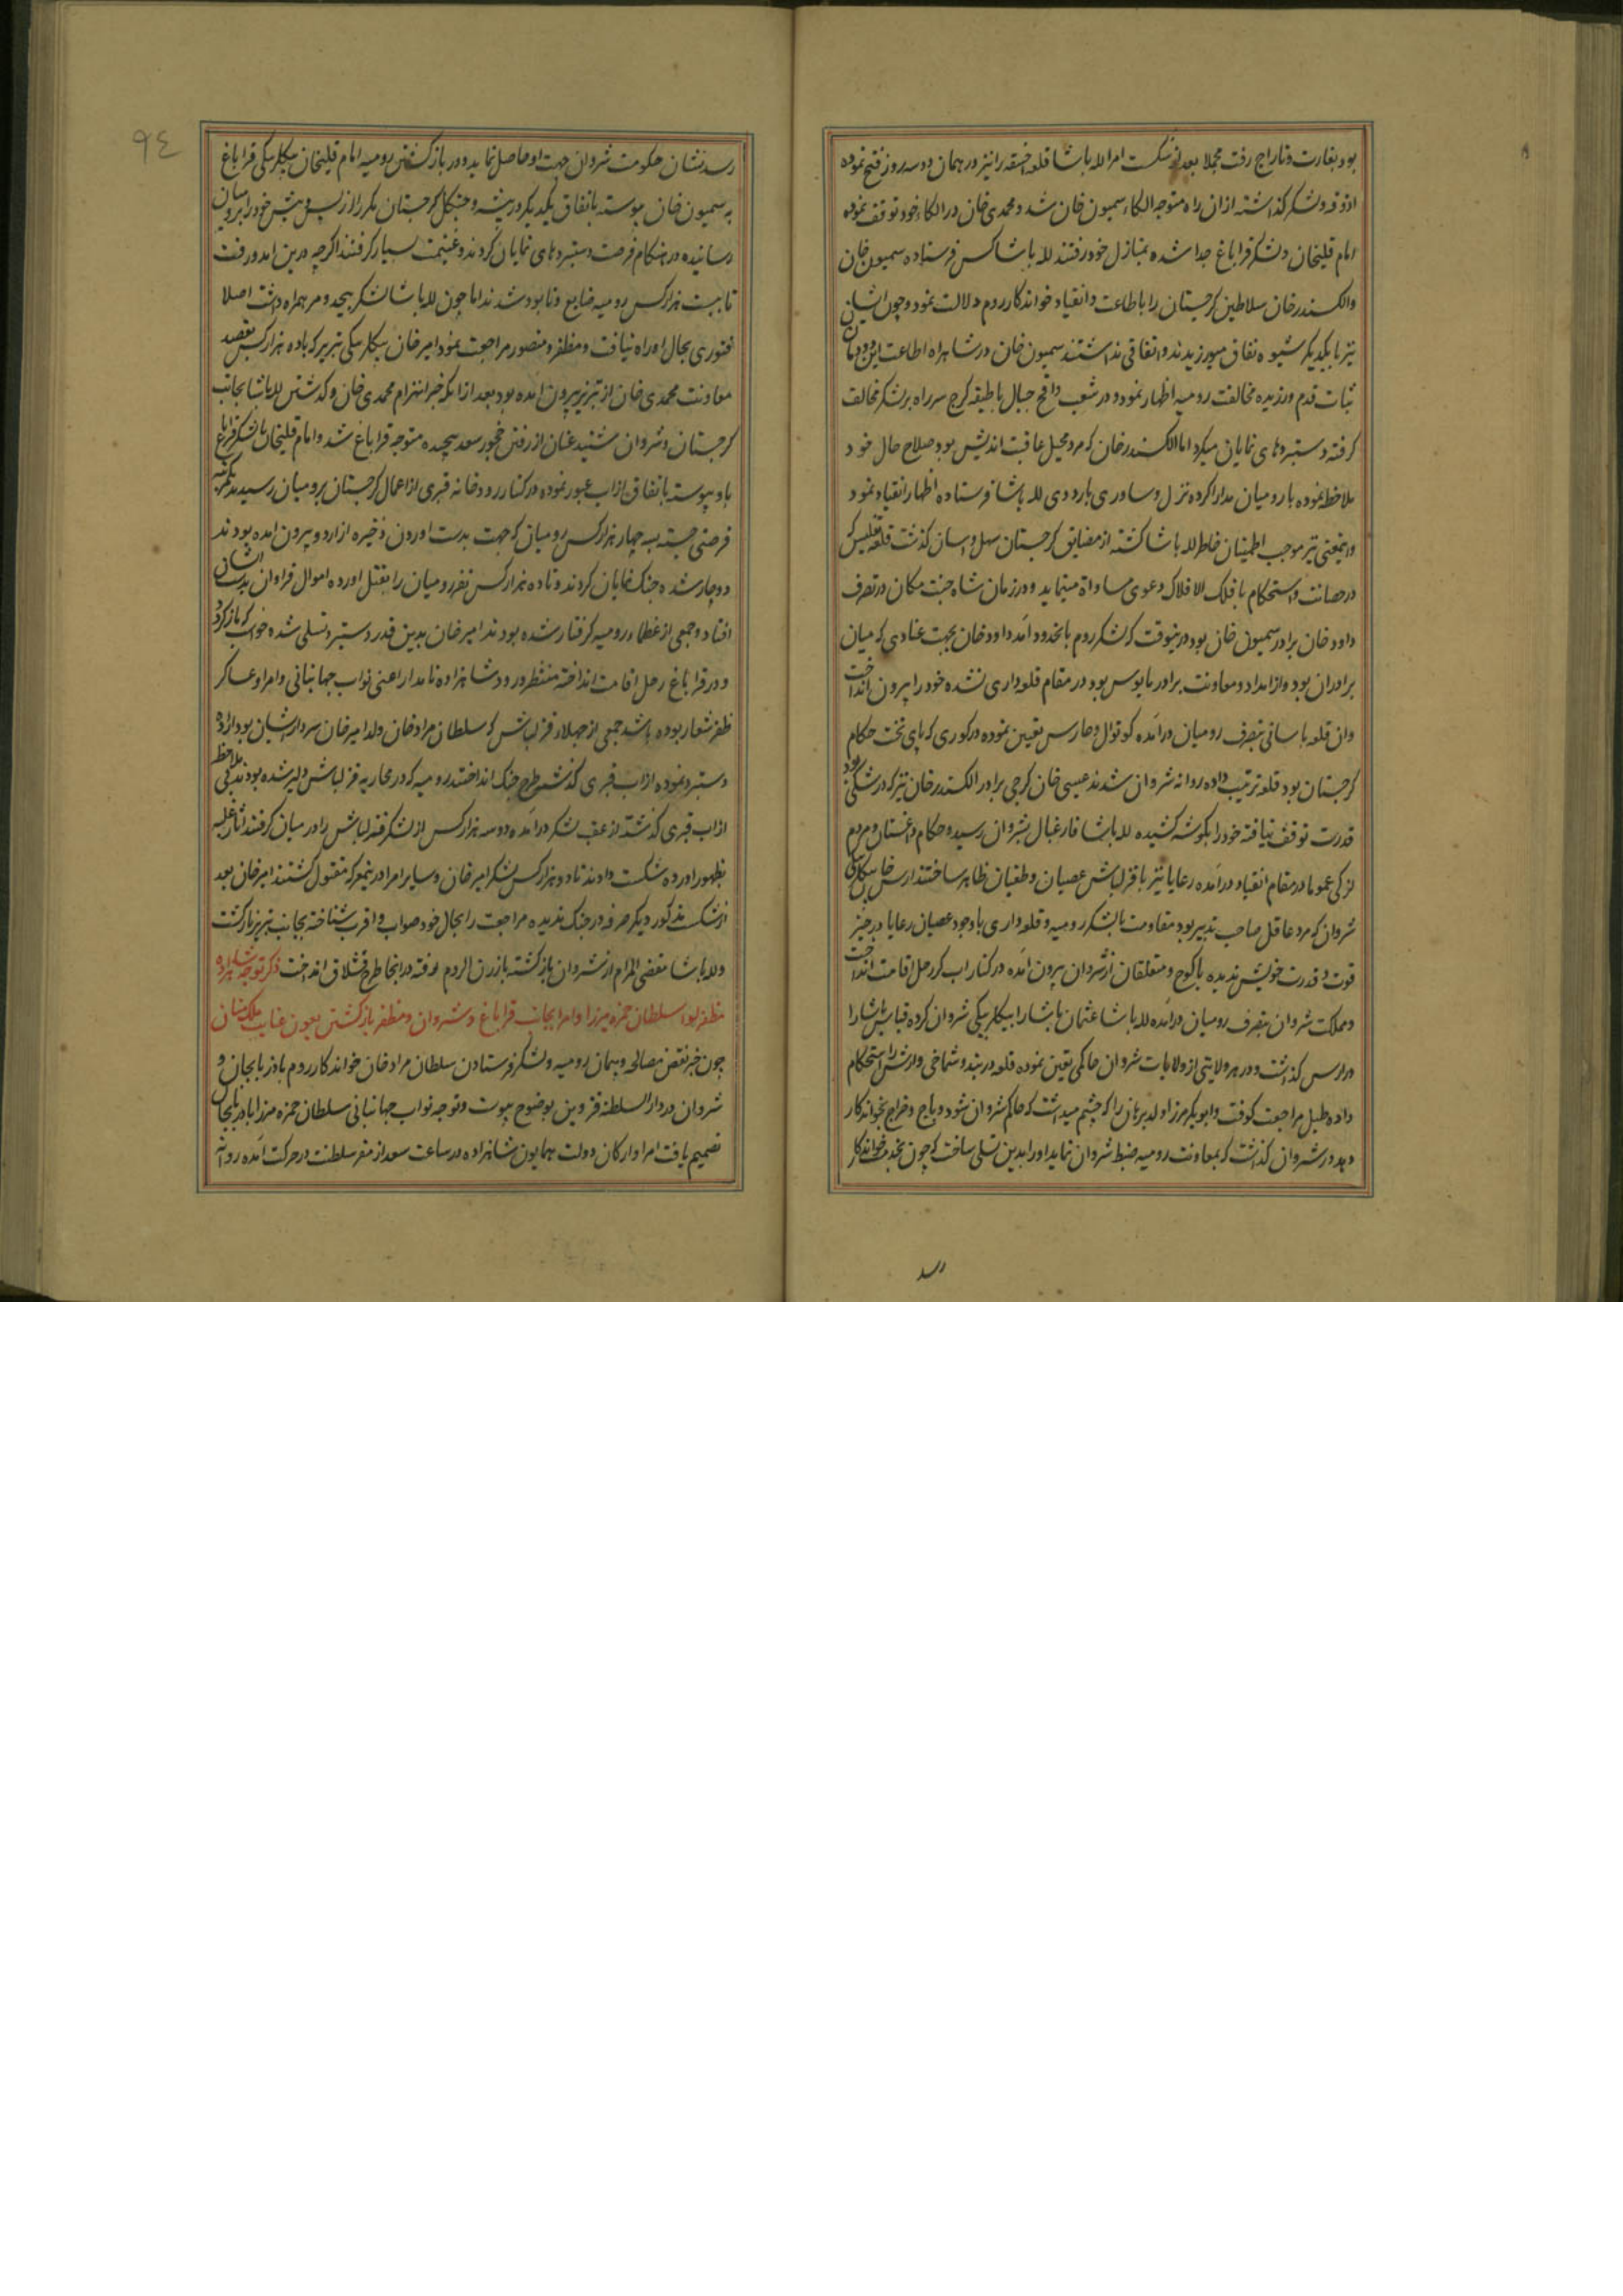 بود بغارت و تاراج رفت مجملا بعد از شکست امرا لله پاشا قلعه اخسقه را نیز در همان دو سه روز فتح نموده
اذوقه و لشکر گذاشته از ان راه متوجه الکاء سمیون خان شد و محمدی خان در الکاء خود توقف نموده
امام قلیخان و لشکر قراباغ جدا شده بمنازل خود رفتند لله پاشا کس فرستاده سمیون خان
والکسندر خان سلاطین گرجستان را باطاعت و انقیاد خواندکار روم دلالت نمود و چون ایشان
نیز با یکدیگر شیوه نفاق میورزیدند و اتفاقی نداشتند سمیون خان در شاهراه اطاعت این دودمان
ثبات قدم ورزیده مخالفت رومیه اظهار نمود و در شعب جبال با طبقه گرج سر راه بر لشکر مخالف
گرفته دستبردهای نمایان میکرد اما الکسندر خان که مرد محیل عاقبت اندیش بود صلاح حال خود
ملاحظه نموده با رومیان مدارا کرده نزل و ساوری باردوی لله پاشا فرستاده اظهار انقیاد نمود
و اینمعنی نیز موجب اطمینان خاطر لله پاشا گشته از مضایق گرجستان سهل و اسان گذشت قلعه تفلیس که
در حصانت و استحکام با فلک الافلاک دعوی مساواة مینماید و در زمان شاه جنت مکان در تصرف
داود خان برادر سمیون خان بود در ینوقت که لشکر روم بانحدود آمد داود خان بجهت عنادی که میان
برادران بود و از امداد و معاونت برادر مایوس بود در مقام قلعه داری نشده خود را بیرون انداخت
وان قلعه باسانی بتصرف رومیان درآمده کوتوال و حارس تعیین نموده در کوری که پای تخت حکام
گرجستان بود قلعه ترتیب داده روانه شروان شدند عیسی خان گرجی برادر الکسندر خان نیز که در شکی بود
قدرت توقف نیافته خود را بگوشه کشیده لله پاشا فارغبال بشروان رسید و حکام داغستان و مردم
لزکی عموما در مقام انقیاد درآمده رعایا نیز با قزلباش عصیان و طغیان ظاهر ساختند ارس خان بیکلربیکی
شروان که مرد عاقل صاحب تدبیر بود مقاومت با لشکر رومیه و قلعه داری با وجود عصیان رعایا در حیز
قوت و قدرت خویش ندیده با کوچ و متعلقان از شروان بیرون آمده در کنار اب کر رحل اقامت انداخت
و مملکت شروان بتصرف رومیان درآمده لله پاشا عثمان پاشا را بیکلربیکی شروان کرده قیاس پاشا را
در ارس گذاشت و در هر ولایتی از ولایات شروان حاکمی تعین نموده قلعه دربند و شماخی و ارش را استحکام
داده طبل مراجعت کوفت و ابوبکر مرزا ولد برهان را که چشم میداشت که حاکم شروان شود و باج و خراج بخواندکار
دهد در شروان گذاشت که بمعاونت رومیه ضبط شروان نماید او را بدین تسلی ساخت که چون بخدمت خواندکار
رسد
٩٤
رسد نشان حکومت شروان جهت او حاصل نماید و در بازگشتن رومیه امام قلیخان بیکلربیکی قراباغ
به سمیون خان پیوسته باتفاق یکدیگر در بیشه و جنگل گرجستان مکرر از پس و پیش خود را برومیان
رسانیده در هنگام فرصت دستبردهای نمایان کردند و غنیمت بسیار گرفتند اگرچه درین امد و رفت
تا بیست هزار کس رومیه ضایع و نابود شدند اما چون لله پاشا لشکر بیحد و مر همراه داشت اصلا
فتوری بحال او راه نیافت و مظفر و منصور مراجعت نمود امیر خان بیکلربیکی تبریز که با ده هزار کس بقصد
معاونت محمدی خان از تبریز بیرون امده بود بعد از انکه خبر انهزام محمدی خان و گذشتن لله پاشا بجانب
گرجستان و شروان شنید عنان از رفتن چخور سعد پیچیده متوجه قراباغ شد و امام قلیخان با لشکر قراباغ
باو پیوسته باتفاق از اب عبور نموده در کنار رودخانه قبری از اعمال گرجستان برومیان رسیدند
فرصتی جسته بسه چهار هزار کس رومیان که جهت بدست اوردن ذخیره از اردو بیرون امده بودند
دوچار شده جنک نمایان کردند و تا ده هزار کس نفر رومیان را بقتل اورده اموال فراوان بدست ایشان
افتاد و جمعی از عظماء رومیه گرفتار شده بودند امیر خان بدین قدر دستبرد تسلی شده
و در قراباغ رحل اقامت انداخته منتظر ورود شاهزاده نامدار اعنی نواب جهانبانی و امرا و عساکر
ظفر شعار بوده باشد جمعی از جهلاء قزلباش که سلطان مراد خان ولد امیر خان سردار ایشان بود
دستبرد نموده از اب قبری گذشته طرح جنک انداختند رومیه که در محاربه قزلباش دلیر شده بودند
از اب قبری گذشته از عقب لشکر درآمده دو سه هزار کس از لشکر قزلباش را در میان گرفتند اثار غلبه
بظهور اورده شکست دادند تا دو هزار کس لشکر امیر خان و سایر امرا درینمعرکه مقتول گشتند امیر خان بعد
از شکست مذکور دیگر صرفه در جنک ندیده مراجعت را بحال خود صواب و اقرب شناخته بجانب تبریز بازگشت
و لله پاشا مقضی المرام از شروان بازگشته بارزن الروم رفته در انجا طرح قشلاق انداخت ذکر توجه شاهزاده
مظفر لوا سلطان حمزه میرزا و امرا بجانب قراباغ و شروان و مظفر بازگشتن بعون عنایت ملک منان
چون خبر نقض مصالحه و پیمان رومیه و لشکر فرستادن سلطان مراد خان خواندکار روم باذربایجان و
شروان در دار السلطنه قزوین بوضوح پیوست و توجه نواب جهانبانی سلطان حمزه مرزا باذربایجان
تصمیم یافت امرا و ارکان دولت همایون شاهزاده در ساعت سعد از مقر سلطنت در حرکت آمده روانه